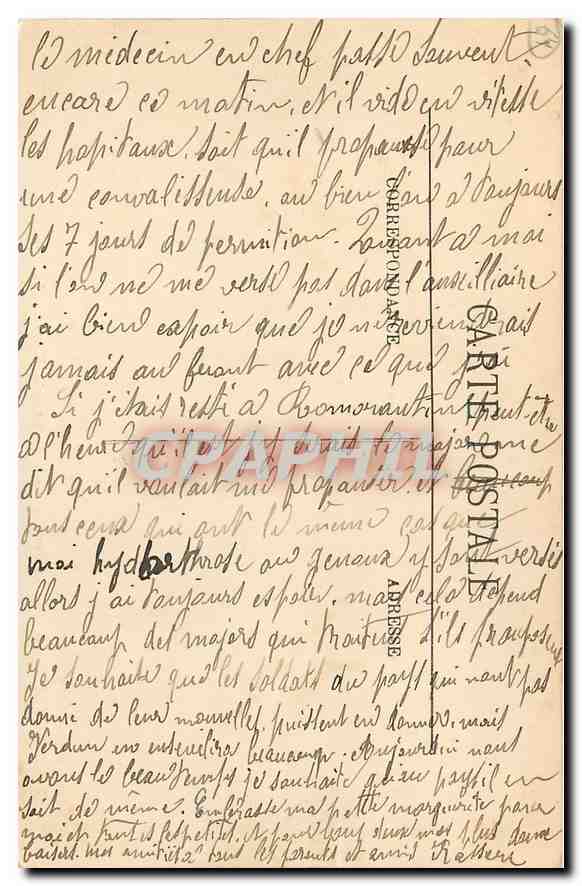 le médecin en chef passe souvent,
encore ce matin, et il vide en vitesse
les hopitaux, soit qu'il propause pour
une convalissense, ou bien l'on a toujours
ses 7 jours de permition. Quant a moi
si l'on ne me verse pas dans l'auxilliaire
j'ai bien espoir que je ne reviendrais
jamais au feront avec ce que j'ai
Si j'étais resté a Romorantin peut-etre
a l'heure qu'il est je serais le major me
dit qu'il voulait me propauser et beaucoup
tous ceux qui ont le même cas que
moi hydarthrose au genoux y sont versés
allors j'ai toujours espoir, mais cela dépend
beaucoup des majors qui traitent s'ils propose
Je souhaite que les soldats du pays qui n'ont pas
donné de leur nouvelles puissent en donner, mais
Verdun en ensevelira beaucoup. Aujourd'hui nous
avons le beau temps je souhaite qu'au pays il en
soit de même. Embrasse ma petite marguerite pour
moi et tous les petites, et pour vous deux mes plus doux
baisers. mes amitiés a tous les parents et amis
CORRESPONDANCE
CARTE POSTALE
ADRESSE
CPAPHIL